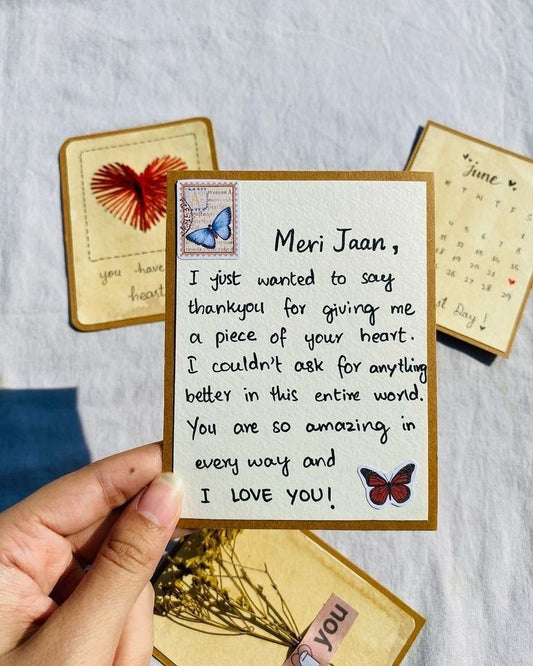 Meri Jaan,
I just wanted to say
thankyou for giving me
a piece of your heart.
I couldn't ask for anything
better in this entire world.
You are so amazing in
every way and
I LOVE YOU!
you have
heart
June
M T W T F S
st Day!
you